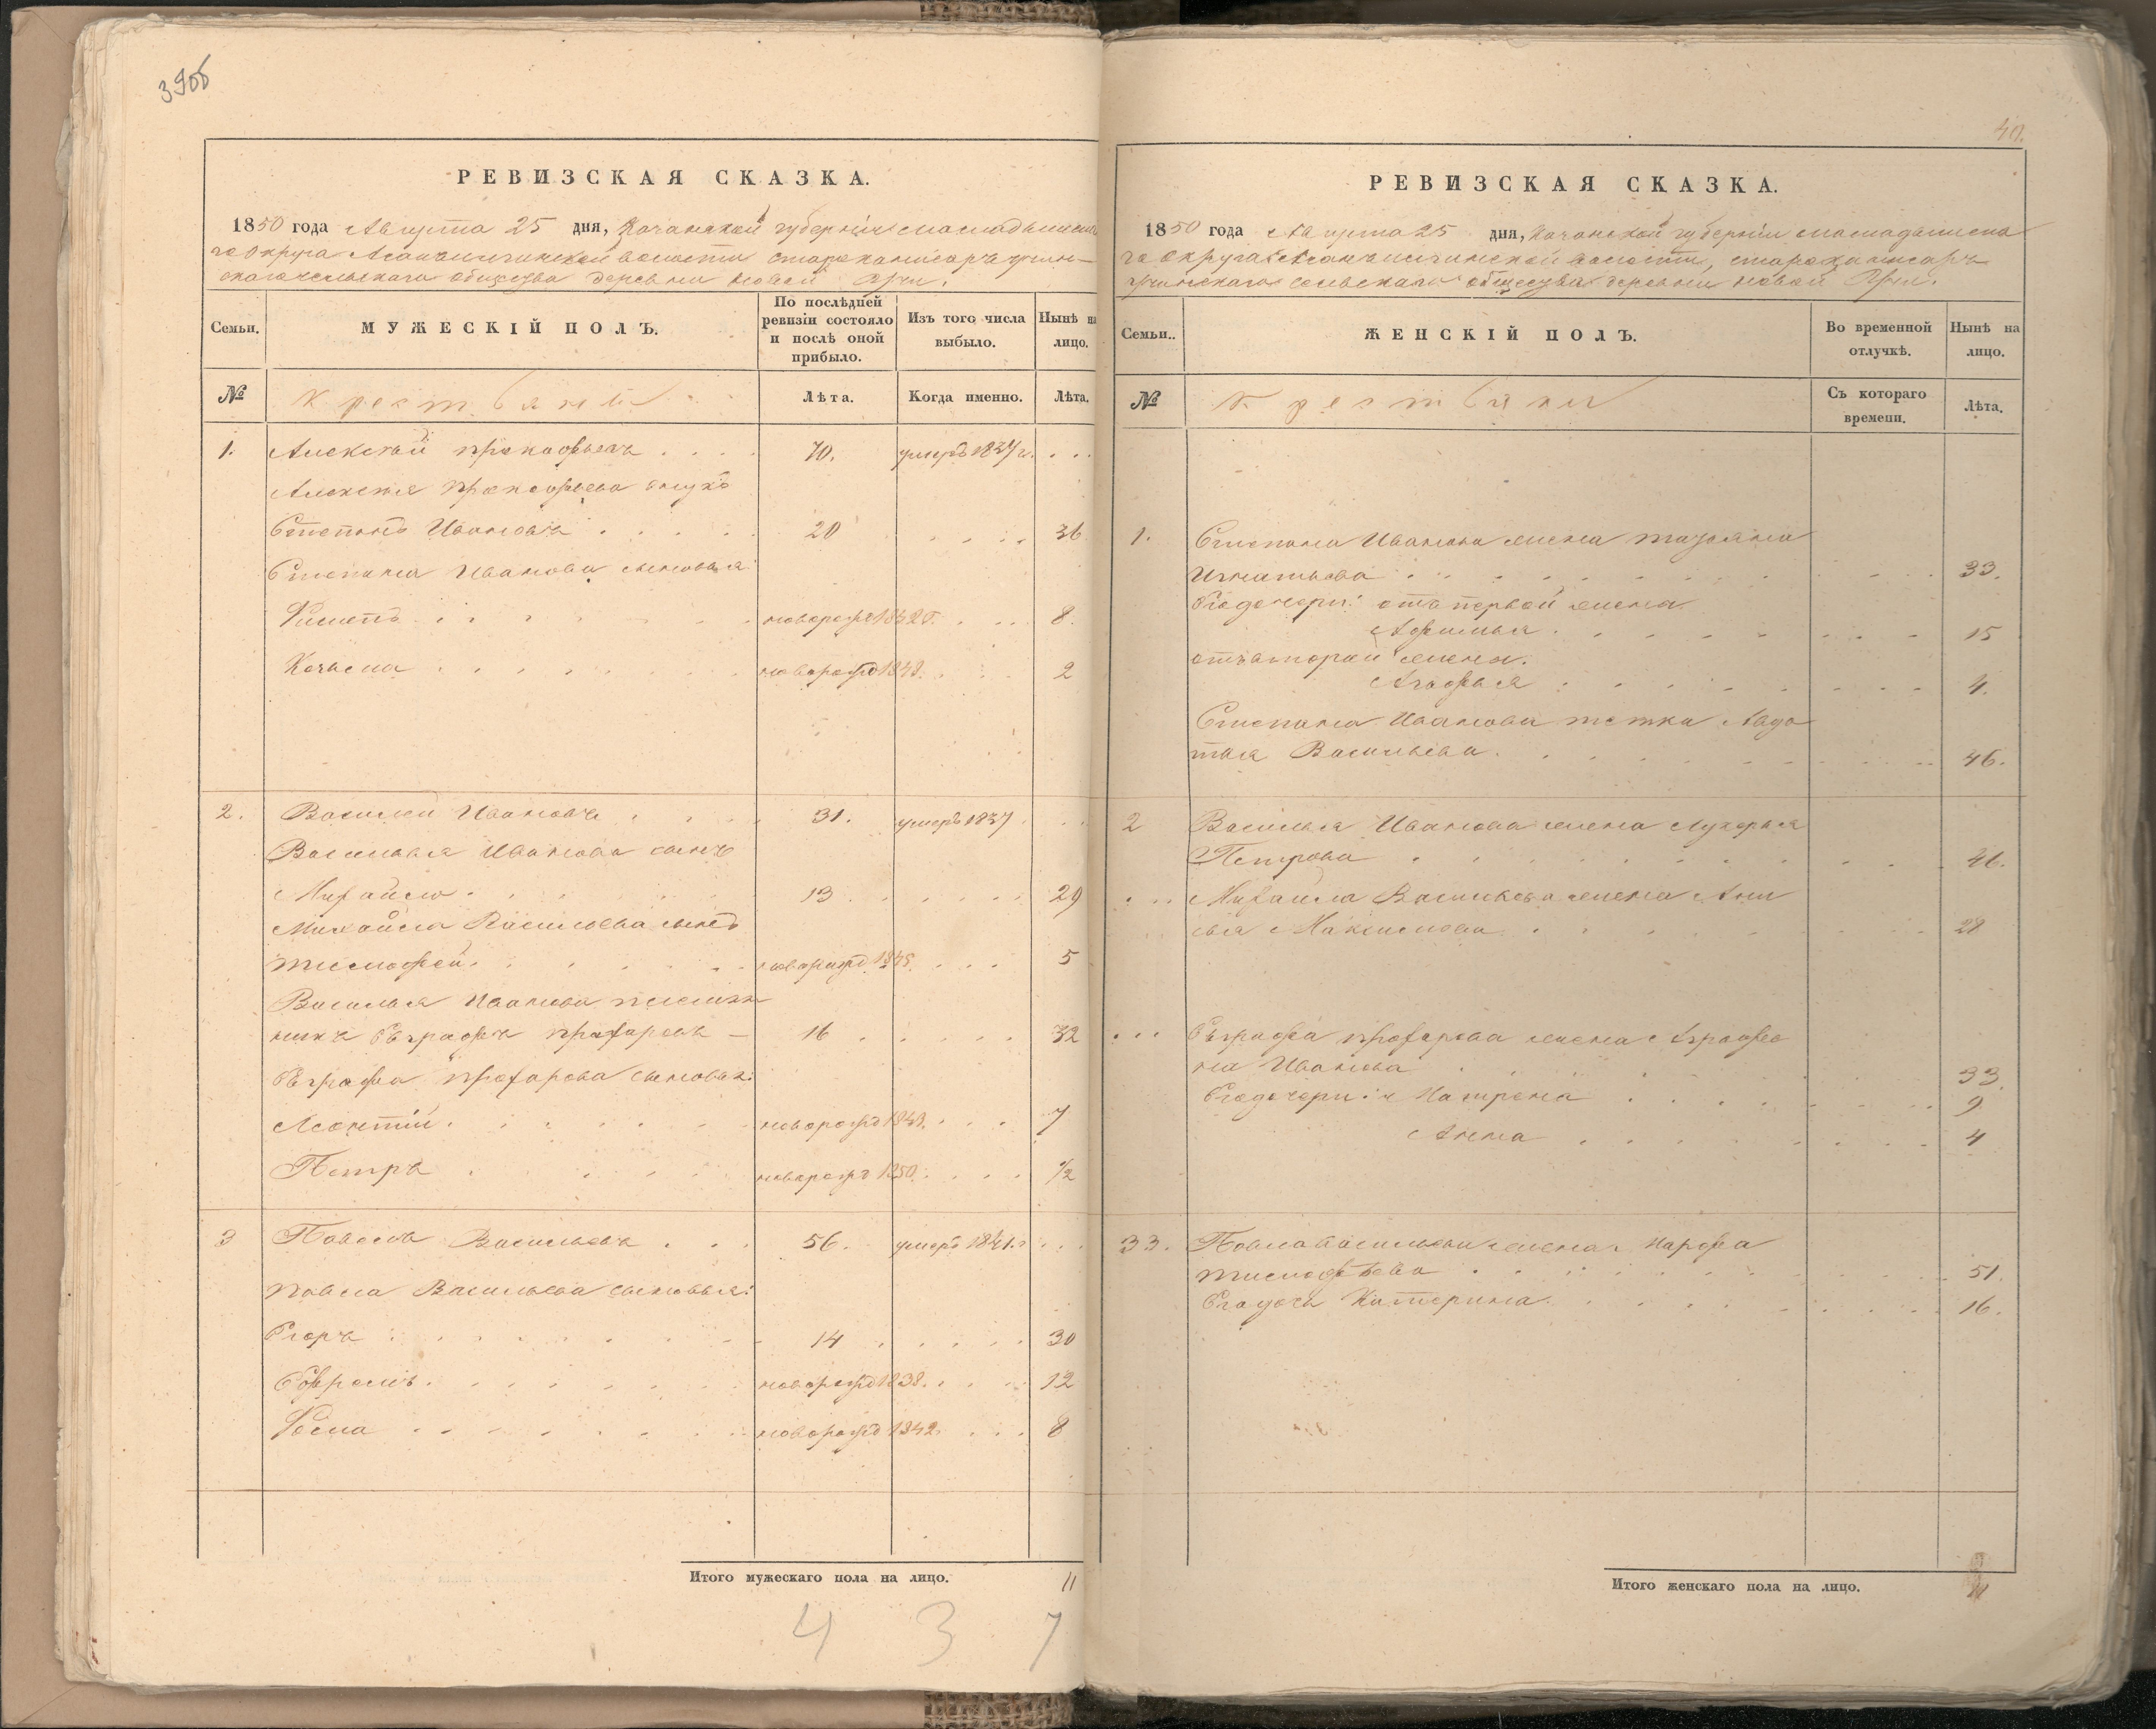 39об
РЕВИЗСКАЯ СКАЗКА.
1850 года Августа 25 дня, Казанской губернии Мамадышска
го округа волости
скаго сельскаго общества деревни Новой
Семьи.
МУЖЕСКІЙ ПОЛЪ.
По послѣдней ревизіи состояло и послѣ оной прибыло.
Изъ того числа выбыло.
Нынѣ на лицо.
№
Крестьяне
Лѣта.
Когда именно.
Лѣта.
1. Алексѣй Прокофьевъ 70. умеръ 1837 г.
Алексѣя Прокофьева внукъ
Степанъ Ивановъ 20 36
Степана Иванова сыновья:
Филипъ новорожд 1842 г. 8.
Козьма новорожд 1848. 2
2. Василей Ивановъ 31. умеръ 1837
Василья Иванова сынъ
Михайло 13 29
Михайла Васильева сынъ
Тимофей новорожд 1845. 5
Василья Иванова племян
никъ Евграфъ Прохоровъ 16 32
Евграфа Прохорова сыновья:
Леонтій новорожд 1843. 7
Петръ новорожд 1850. 1/2
3 Павелъ Васильевъ 56. умеръ 1841. г
Павла Васильева сыновья:
Егоръ 14 30
Ефремъ новорожд 1838. 12
новорожд 1842. 8
Итого мужескаго пола на лицо. 11
4 3 7
40.
РЕВИЗСКАЯ СКАЗКА.
1850 года Августа 25 дня, Казанской губернии Мамадышска
го округа волости,
сельскаго общества деревни Новой
Семьи..
ЖЕНСКІЙ ПОЛЪ.
Во временной отлучкѣ.
Нынѣ на лицо.
№
Крестьяне
Съ котораго времени.
Лѣта.
1. Степана Иванова жена Татьяна
Игнатьева 33.
Его дочери: отъ первой жены
Афимья 15
отъ второй жены.
Агафья 4.
Степана Иванова тетка Авдо
тья Васильева 46.
2 Василья Иванова жена Лукерья
Петрова 46.
Михаила Васильева жена Ани
сья Максимова 28
Евграфа Прохорова жена Аграфе
на Иванова 33.
Его дочери: Матрена 9
Анна 4
33. Павла Васильева жена Марфа
Тимофѣева 51.
Его дочь Катерина 16.
Итого женскаго пола на лицо. 11